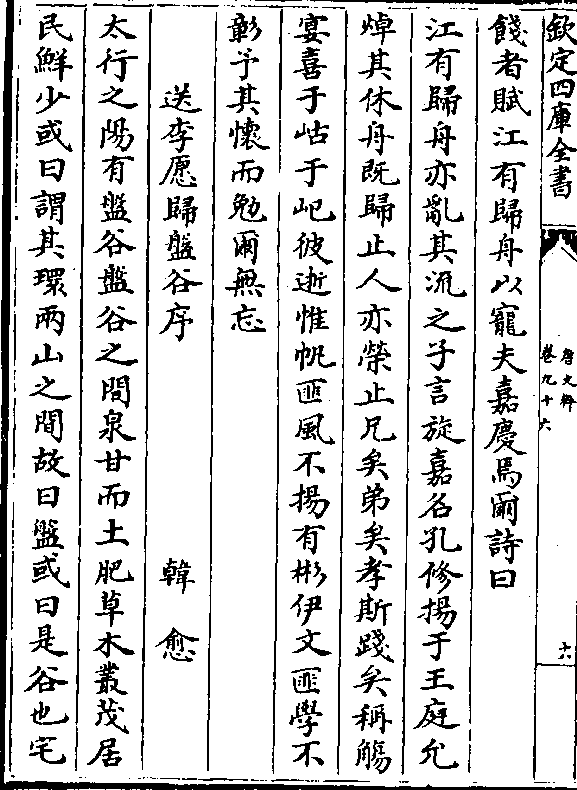 欽定四庫全書
唐文粹
卷九十六
六
餞者賦江有歸舟以寵夫嘉慶焉爾詩曰
江有歸舟亦亂其流之子言旋嘉名孔修揚于王庭允
焯其休舟既歸止人亦榮止兄矣弟矣孝斯踐矣稱觴
宴喜于岵于屺彼逝惟帆匪風不揚有彬伊文匪學不
彰予其懷而勉爾無忘
送李愿歸盤谷序 韓愈
太行之陽有盤谷盤谷之間泉甘而土肥草木叢茂居
民鮮少或曰謂其環兩山之間故曰盤或曰是谷也宅